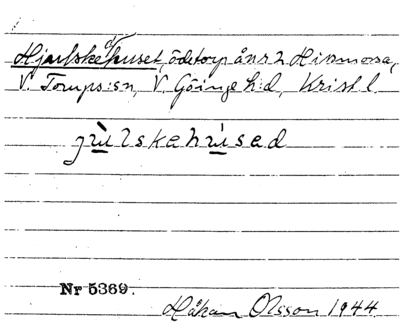 Hjulskehuset, ödetorp å nr 2 Hissmossa,
V. Torups :sn, V. Göinge h:d, Krist l
jùlskehúsed
Nr 5369.
Håkan Olsson 1944